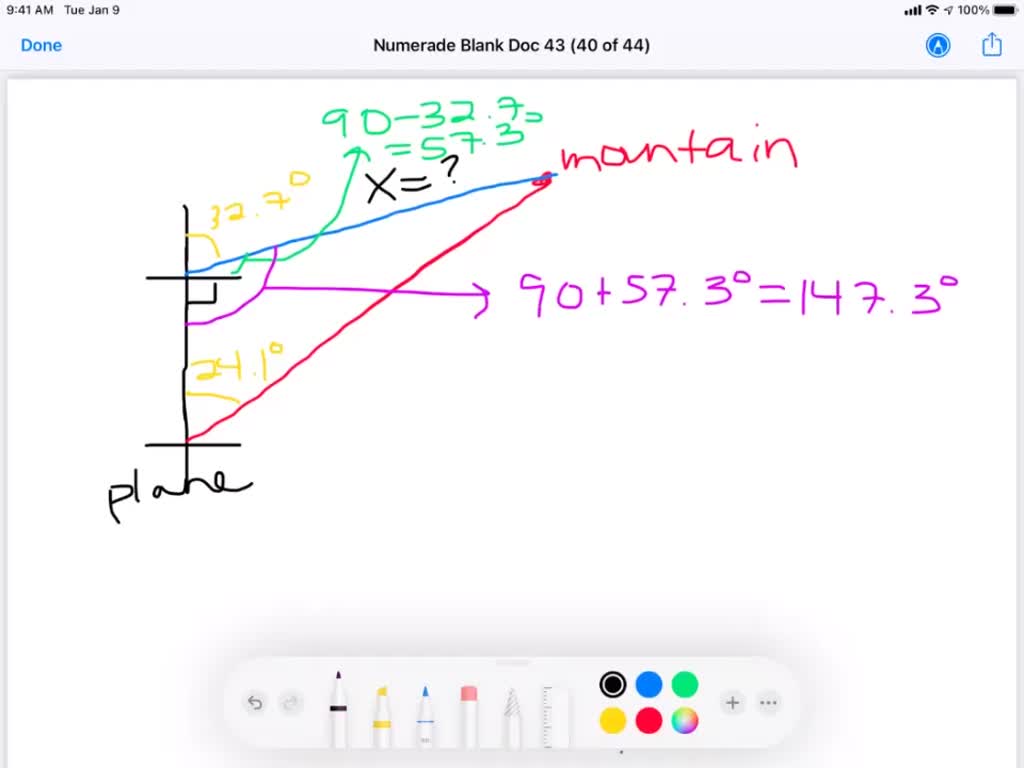 9:41 AM Tue Jan 9
100%
Done
Numerade Blank Doc 43 (40 of 44)
90-32.7=
=57.3
mountain
32.7°
X=?
90+57.3°=147.3°
24.1°
plane